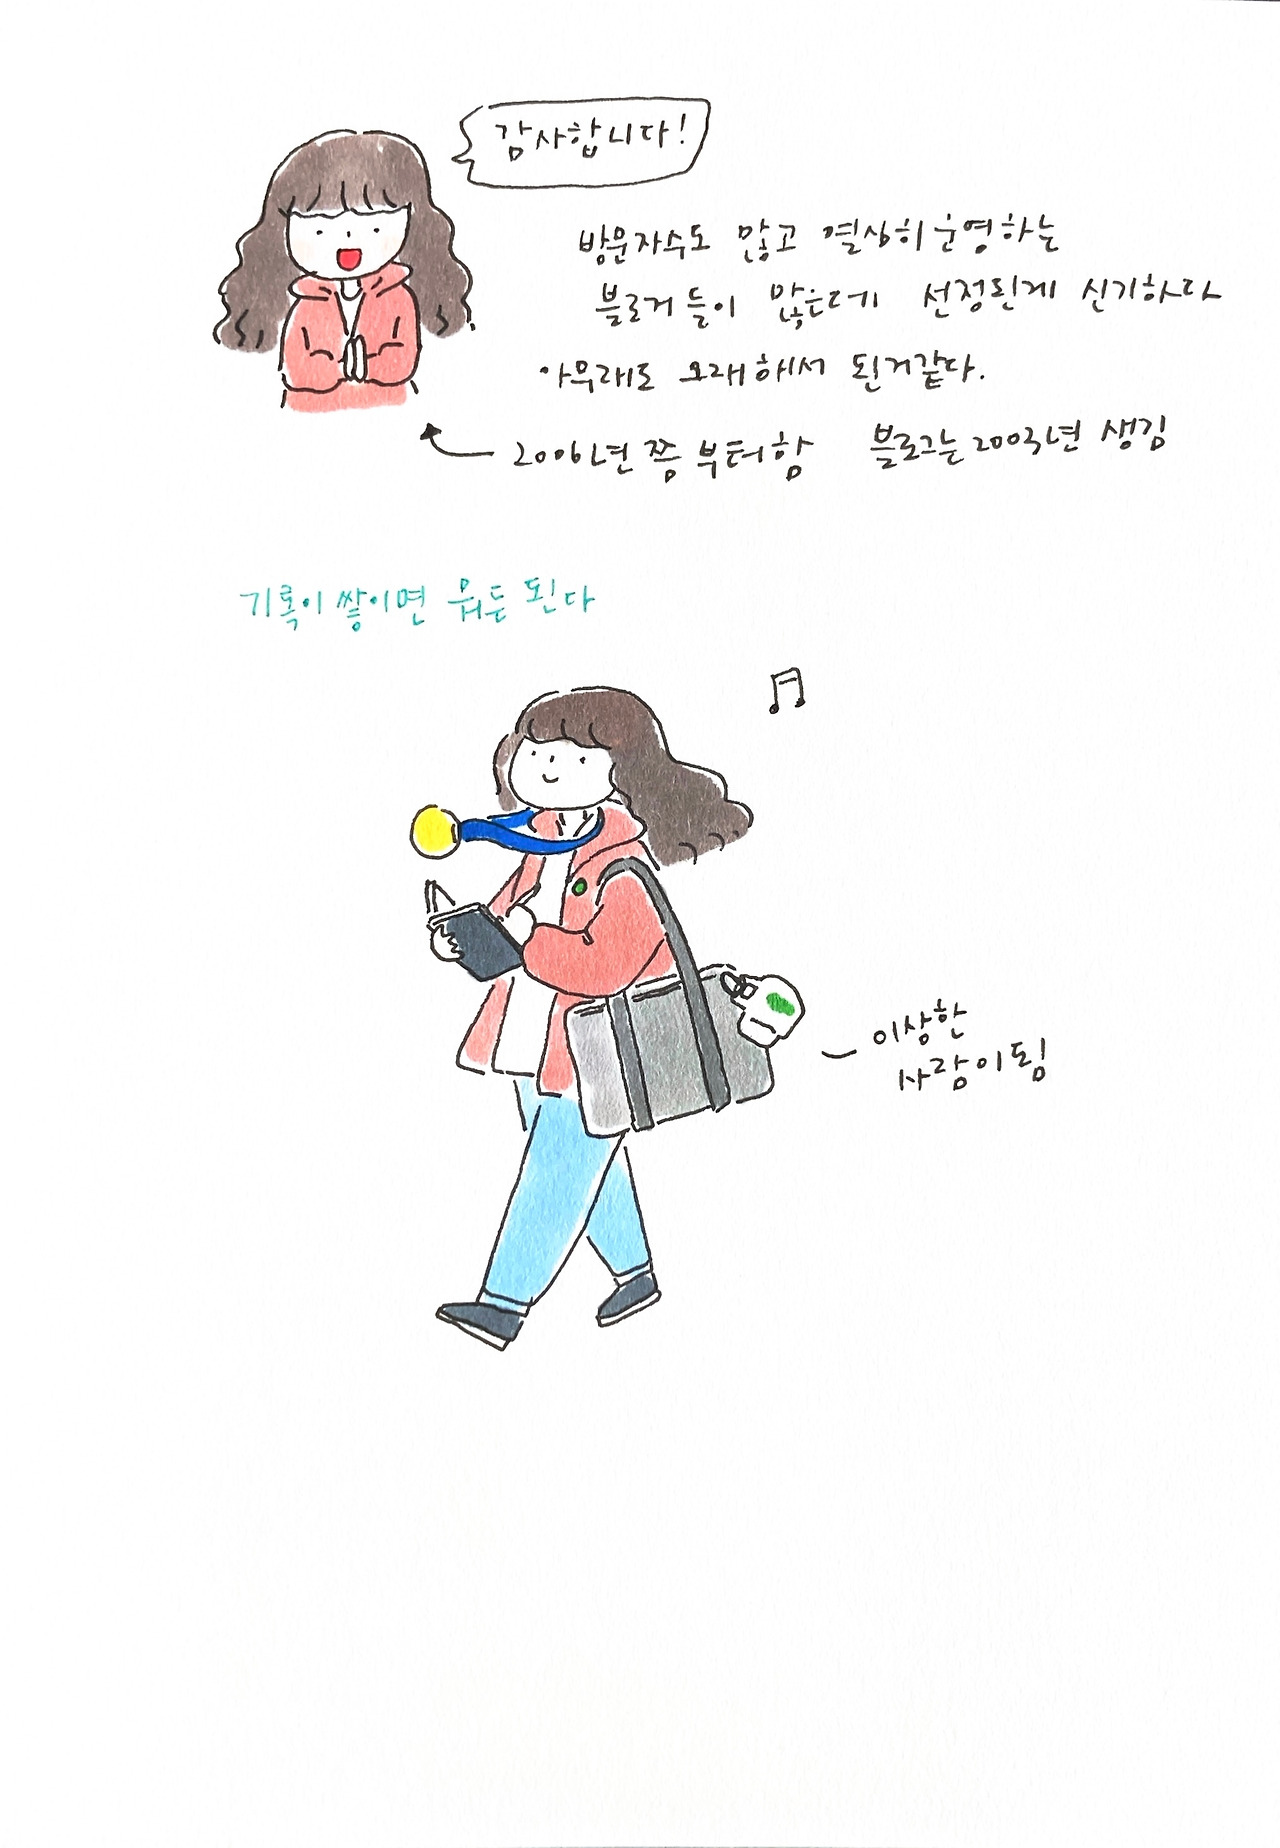 감사합니다!
방문자수도 많고 열심히 운영하는
블로거들이 많은데 선정된게 신기하다
아무래도 오래해서 된거같다.
2006년쯤 부터함 블로그는 2003년 생김
기록이 쌓이면 뭐든 된다
이상한
사람이 됨